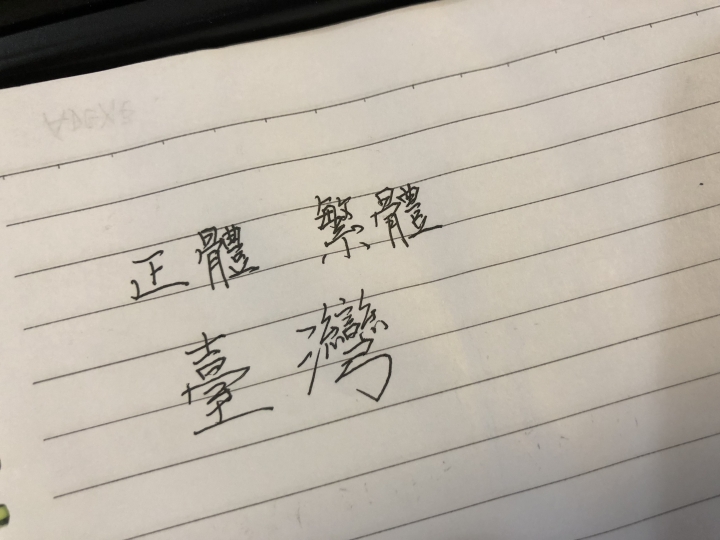 正體 繁體
臺灣